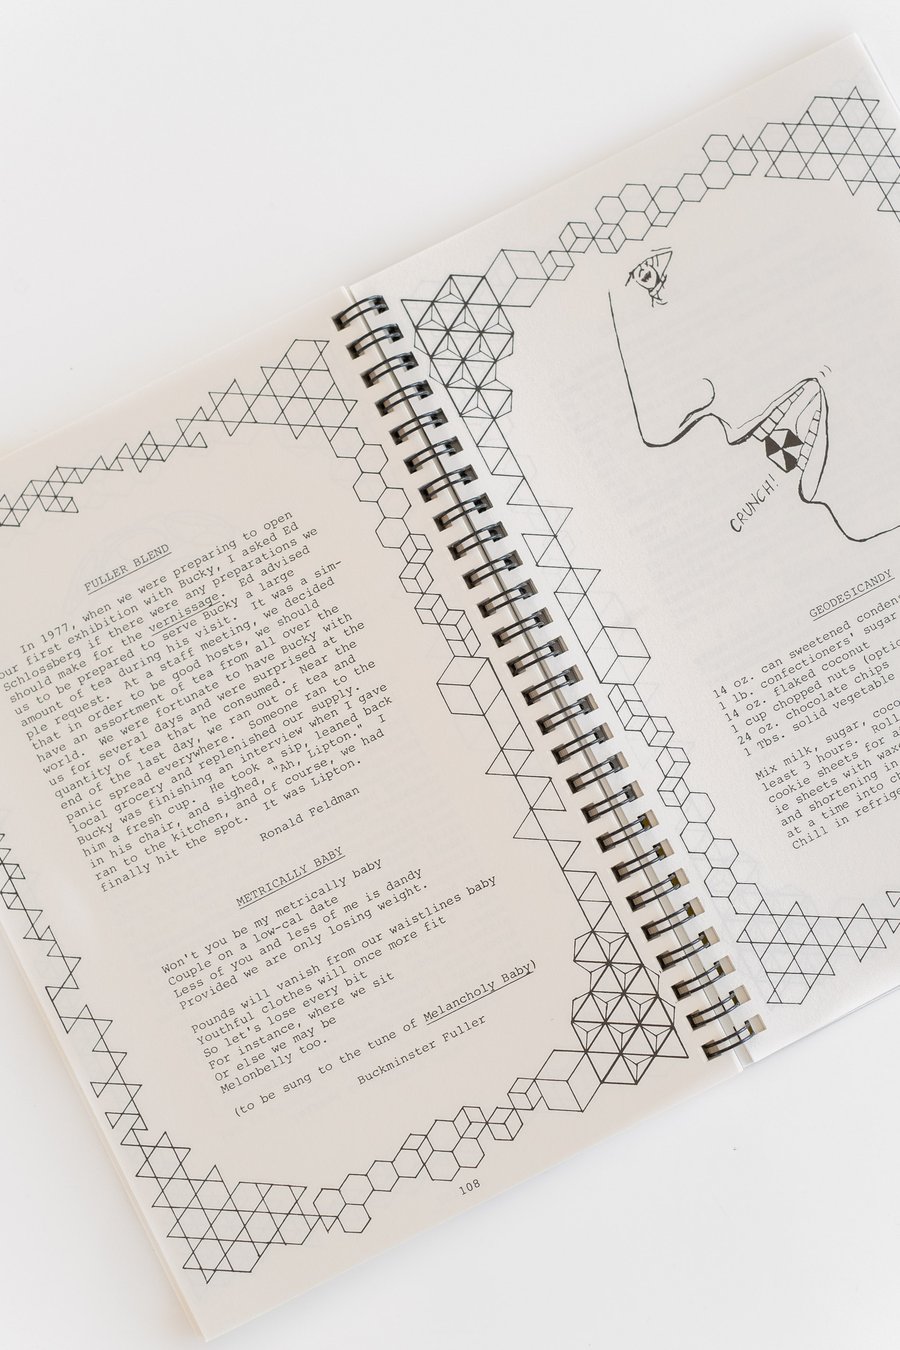 FULLER BLEND
In 1977, when we were preparing to open
our first exhibition with Bucky, I asked Ed
Schlossberg if there were any preparations we
should make for the vernissage. Ed advised
us to be prepared to serve Bucky a large
amount of tea during his visit. It was a sim-
ple request. At a staff meeting, we decided
that in order to be good hosts, we should
have an assortment of tea from all over the
world. We were fortunate to have Bucky with
us for several days and were surprised at the
quantity of tea that he consumed. Near the
end of the last day, we ran out of tea and
panic spread everywhere. Someone ran to the
local grocery and replenished our supply.
Bucky was finishing an interview when I gave
him a fresh cup. He took a sip, leaned back
in his chair, and sighed, "Ah, Lipton." I
ran to the kitchen, and of course, we had
finally hit the spot. It was Lipton.
Ronald Feldman
METRICALLY BABY
Won't you be my metrically baby
Couple on a low-cal date
Less of you and less of me is dandy
Provided we are only losing weight.
Pounds will vanish from our waistlines baby
Youthful clothes will once more fit
So let's lose every bit
For instance, where we sit
Or else we may be
Melonbelly too.
(to be sung to the tune of Melancholy Baby)
Buckminster Fuller
108
CRUNCH!
GEODESICANDY
14 oz. can sweetened conden
1 lb. confectioners' sugar
14 oz. flaked coconut
1 cup chopped nuts (optio
24 oz. chocolate chips
1 Tbs. solid vegetable
Mix milk, sugar, coco
least 3 hours. Roll
cookie sheets for a
ie sheets with wax
and shortening in
at a time into ch
Chill in refrige